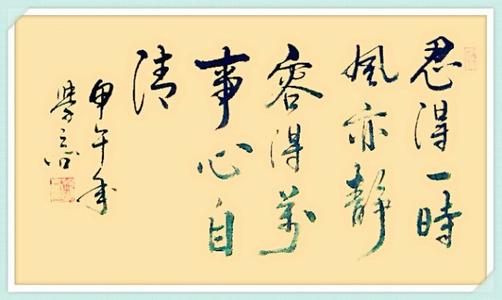 忍得一時
風亦静
容得萬
事心自
清
甲午年